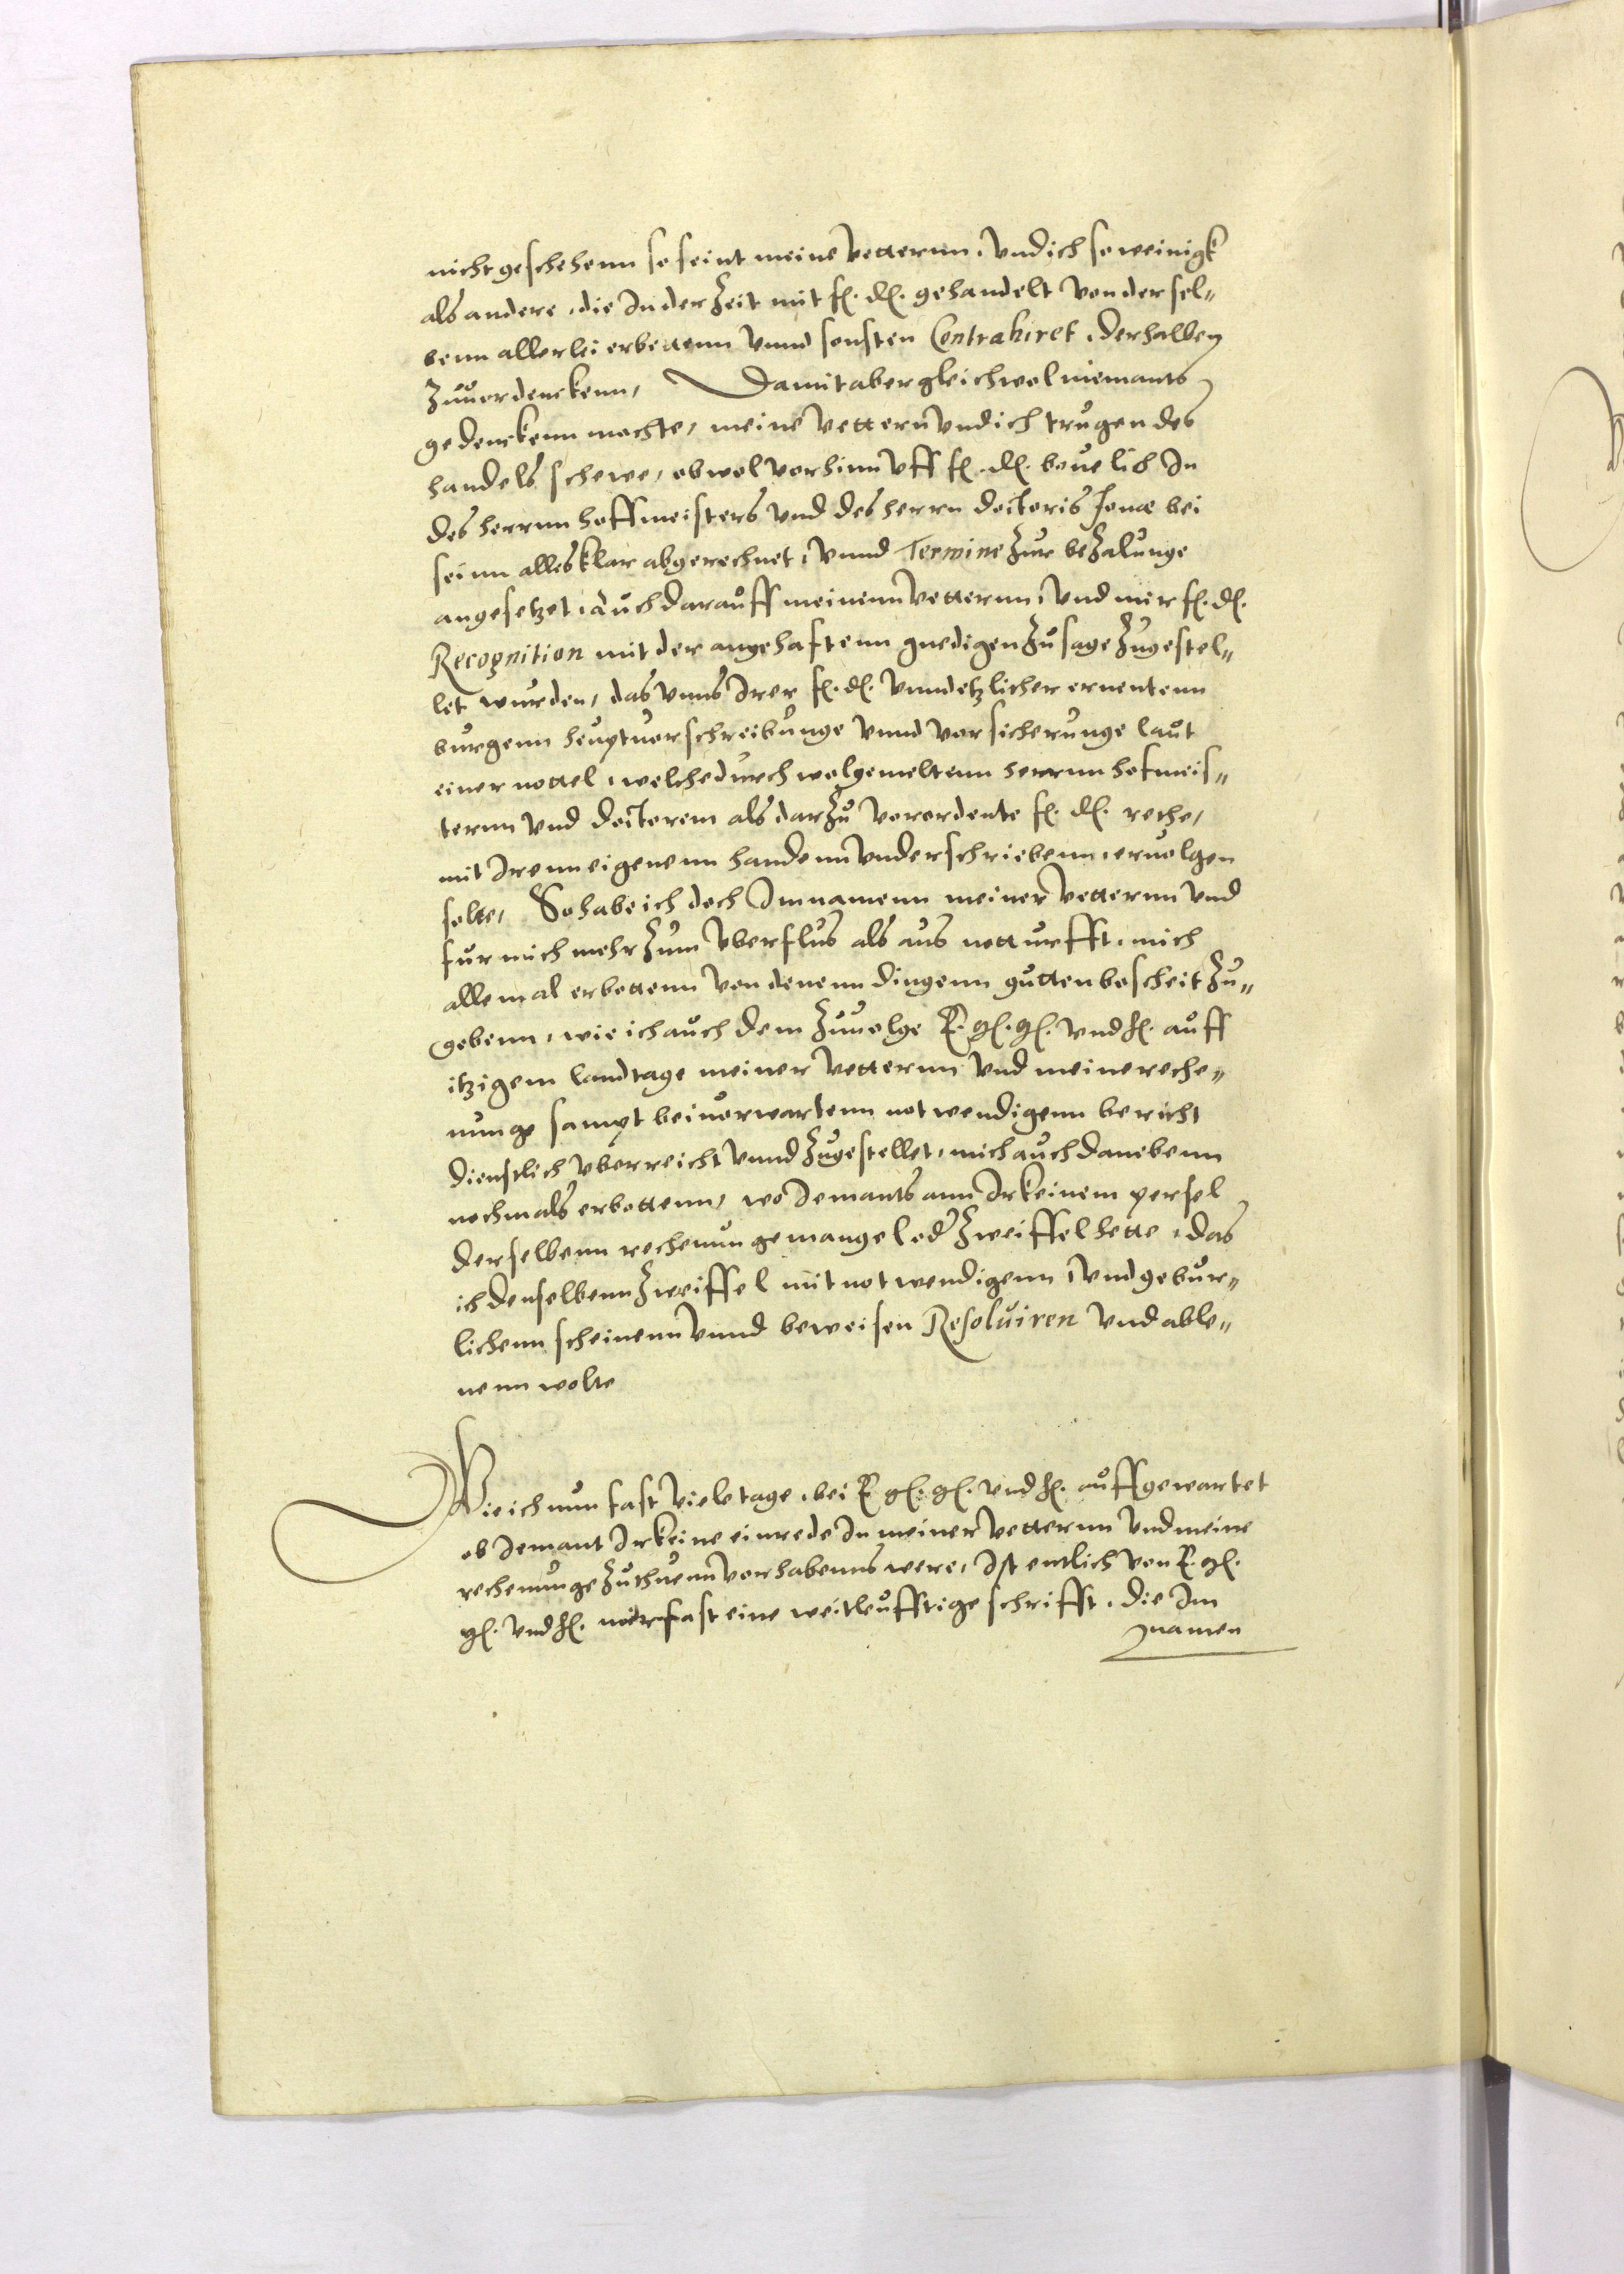 nicht geschehenn so seint meine Vetternn, Vnd ich so weinigk
als andere, die In der Zeit mit f. d. gehandelt von dersel„
benn allerlei erbettenn vnnd sonsten Contrahiret, derhalben
Zuuordenckenn, Damit aber gleichwol niemants
gedenckenn mochte, meine Vetternn vnd ich trugen des
handels schewe, ob wol vorhinn vff f. d. beuelich In
des herrnn hoffmeisters vnd des herrn doctoris Jonæ bei
seinn alles klar abgerechnet, vnnd Termine Zur beZalunge
angesetzet, Auch darauff meinenn Vetternn, vnd mir f. d.
Recognition mit der angehafftenn gnedigen Zusage Zugestel„
let wurden, das vnns Irer f. d. vnnd etzlicher ernentenn
burgenn heuptuorschreibunge vnnd vorsicherunge laut
einer nottel, welche durch wolgemeltenn herrnn hofmeis„
ternn vnd doctorem als darZu verordente f. d. rethe,
mit Irenn eigenenn handenn vnderschriebenn, ervolgen
solte, So habe ich doch Im namenn meiner Vetternn vnd
fur mich mehr Zum vberflus als aus notturfft, mich
allemal erbottenn von denenn dingenn gutten bescheit Zu„
gebenn, wie ich auch dem Zuuolge E. g. g. vnd h. auff
itzigem landtage meiner Vetternn vnd meine reche„
nunge sampt beiuorwartenn notwendigenn bericht
dienstlich vberreicht vnnd Zugestellet, mich auch danebenn
nochmals erbottenn, wo Iemants ann Irkeinem persel
derselbenn rechenunge mangel oder Zweiffel hette, das
ich denselbenn Zweiffel mit notwendigenn vnd gebur„
lichenn scheinenn vnnd beweisen Resoluiren vnd able„
nenn wolte
Wie ich nun fast viele tage, bei E. g. g. vnd h. auffgewartet
ob Iemant Irkeine einrede In meiner Vetternn vnd meine
rechenunge Zuthuenn vorhabenns were, Ist entlich von E. g.
g. vnd h. mir fast eine weitleufftige schrifft, die Im
namen